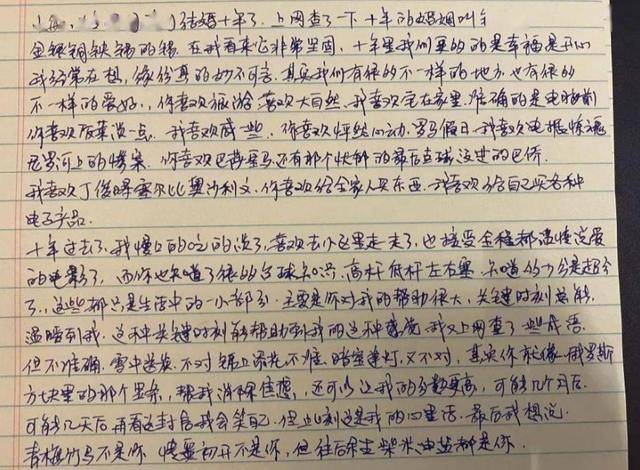 结婚十年了,上网查了一下十年的婚姻叫金
金银铜铁锡的锡,在我看来它非常坚固,十年里我们更多的是幸福是开心
我经常在想,缘份真的妙不可言.其实我们有很多不一样的地方,也有很多
不一样的爱好,你喜欢旅游喜欢大自然,我喜欢宅在家里,准确的是电脑前
你喜欢饭菜淡一点,我喜欢咸一些,你喜欢怦然心动,罗马假日,我喜欢电锯惊魂
尼罗河上的惨案.你喜欢巴蒂星马还有那个忧郁的最后点球没进的巴乔
我喜欢丁俊晖塞尔比奥沙利文.你喜欢给全家人买东西,我喜欢给自己买各种
电子产品.
十年过去了,我慢慢的吃的淡了,喜欢去小区里走一走了,也接受全程都温情浪漫
的电影了,而你也知道了很多台球知识,高杆低杆左右塞,知道147分是超分
了,这些都只是生活中的一小部分,主要是你对我的帮助很大,关键时刻总能
温暖到我.这种关键时刻能帮助到我的这种感觉,我又上网查了一些成语,
但不准确,雪中送炭不对,锦上添花不准,暗室逢灯,又不对,其实你就像俄罗斯
方块里的那个竖条,帮我消除住想,还可以让我的分数更高,可能几个月后
可能几天后再看这封信我会笑自己,但此刻这是我的心里话.最后我想说
青梅竹马不是你,情窦初开不是你,但往后余生柴米油盐都是你.